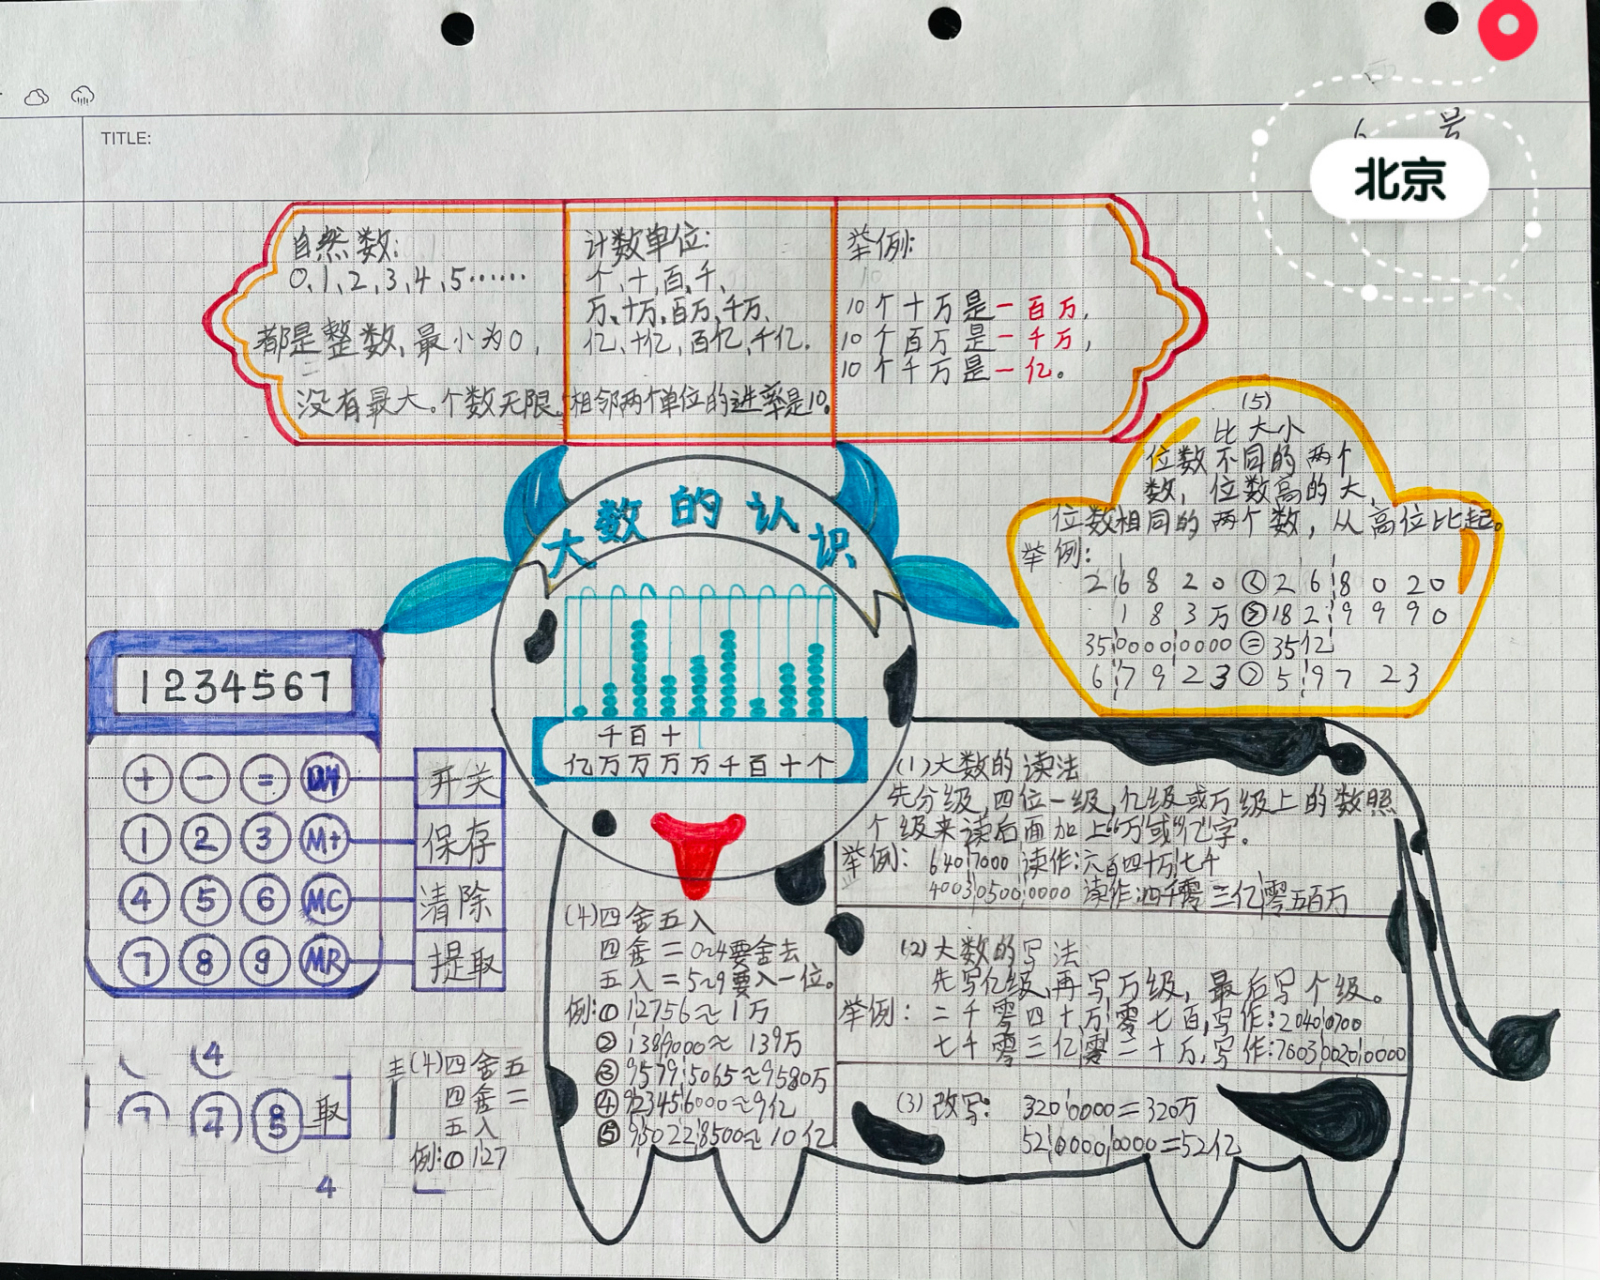 TITLE:
6 号
北京
自然数:
0、1、2、3、4、5……
都是整数,最小为0,
没有最大。个数无限。
计数单位:
个、十、百、千、
万、十万、百万、千万、
亿、十亿、百亿、千亿.
相邻两个单位的进率是10。
举例:
10个十万是一百万,
10个百万是一千万,
10个千万是一亿。
大数的认识
千百十
亿万万万万千百十个
1234567
+ - =
开关
1 2 3 M+
保存
4 5 6 MC
清除
7 8 9 MR
提取
(5)
比大小
位数不同的两个
数,位数高的大,
位数相同的两个数,从高位比起。
举例:
2 6 8 2 0 < 2 6 8 0 2 0
1 8 3万 > 18 2 9 9 9 0
35 0000 0000 = 35亿
6 7 9 2 3 > 5 9 7 2 3
(1)大数的读法
先分级,四位一级,亿级或万级上的数照
个级来读后面加上“万”或“亿”字。
举例: 640 7000 读作:六百四十万七千
4003 0500 0000 读作:四千零三亿零五百万
(2)大数的写法
先写亿级,再写万级,最后写个级。
举例:二千零四十万零七百,写作:2040 0700
七千零三亿零二十万,写作:7003 0020 0000
(3)改写: 320 0000=320万
52 0000 0000=52亿
(4)四舍五入
四舍=0~4要舍去
五入=5~9要入一位。
例:① 12756≈1万
② 1389000≈139万
③ 9579 5065≈9580万
④ 923456000≈9亿
⑤ 950228500≈10亿
4
7 8
取
(4)四舍五
四舍=
五入
例:① 127
4